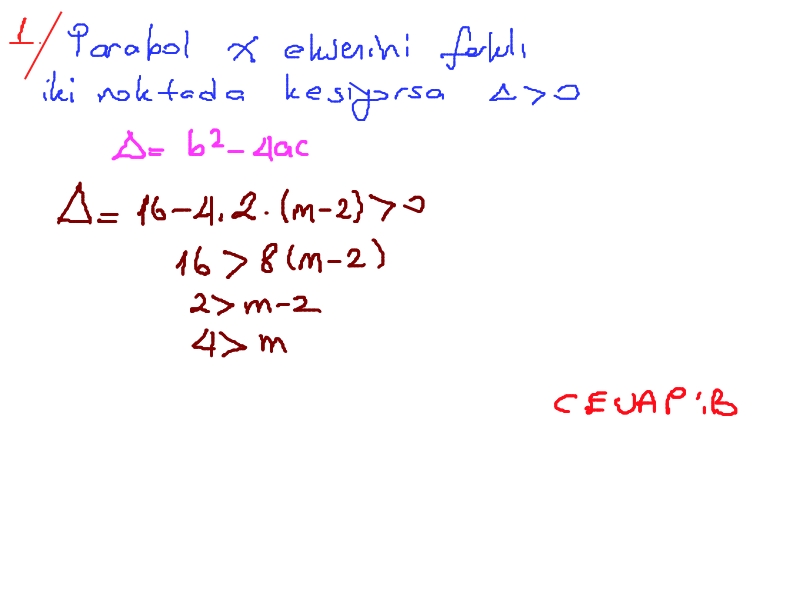 1.
Parabol x eksenini farklı
iki noktada kesiyorsa Δ>0
Δ= b²-4ac
Δ= 16-4.2.(m-2)>0
16>8(m-2)
2>m-2
4>m
CEVAP:B